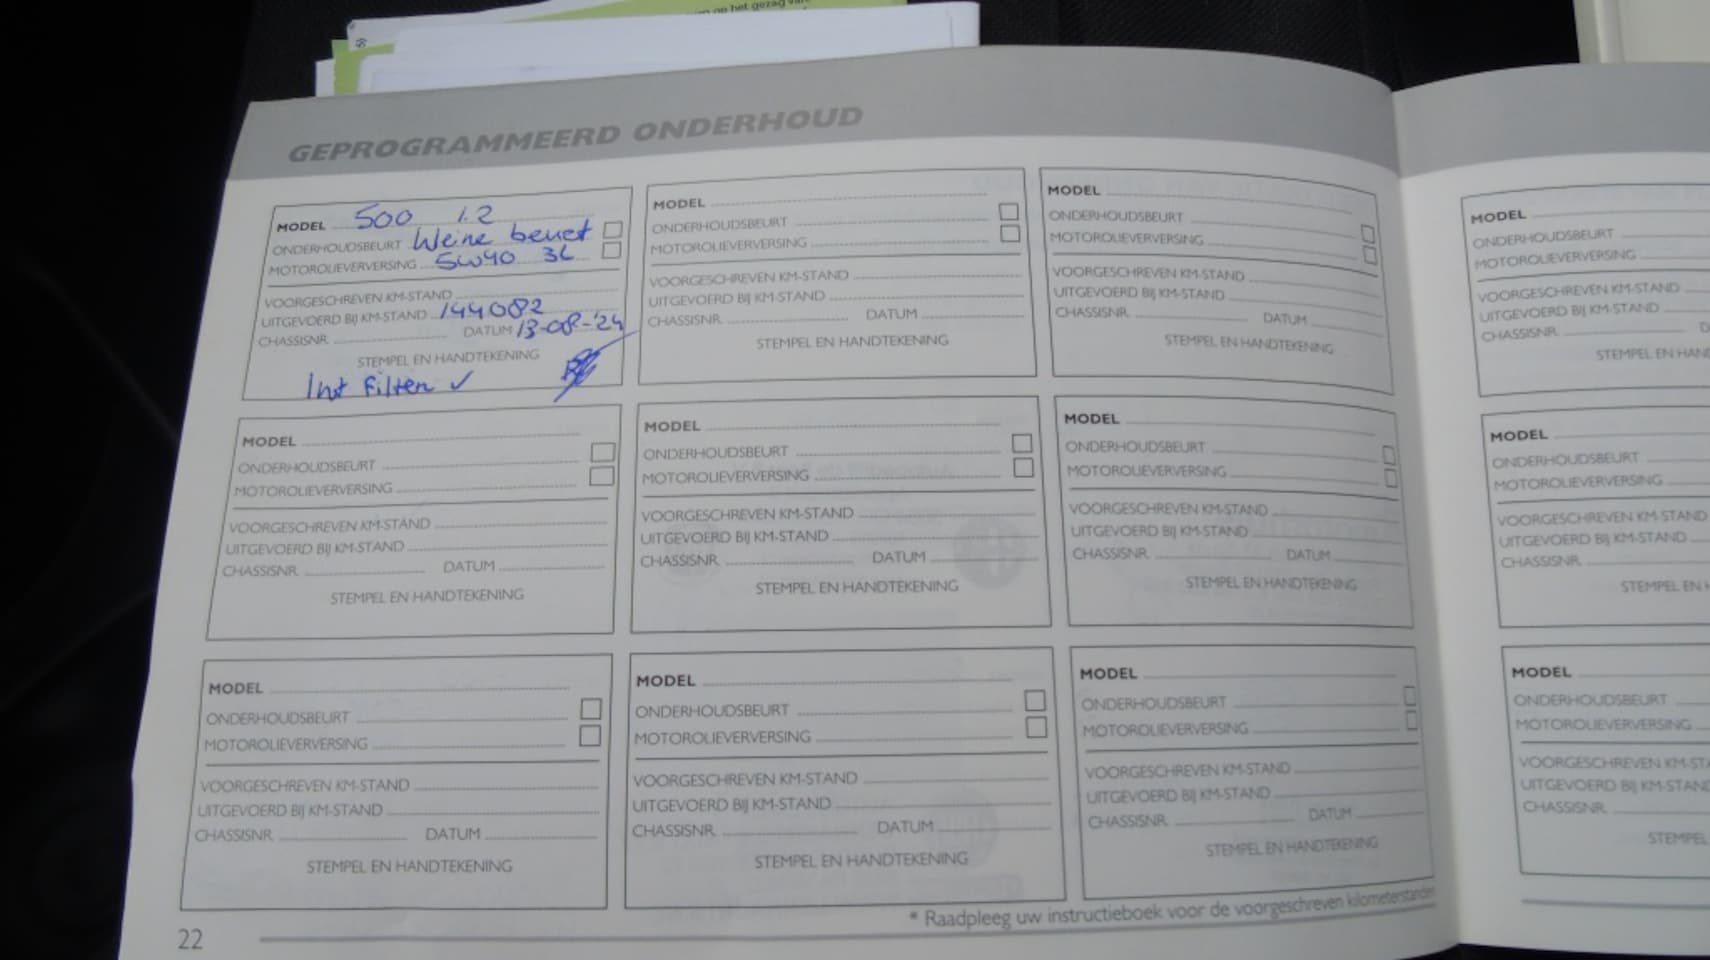 op het gezag van
GEPROGRAMMEERD ONDERHOUD
MODEL 500 1.2
ONDERHOUDSBEURT kleine beurt
MOTOROLIEVERVERSING 5W40 3L
VOORGESCHREVEN KM-STAND
UITGEVOERD BIJ KM-STAND 144082
CHASSISNR. DATUM 13-08-'24
STEMPEL EN HANDTEKENING
Int Filter ✓
MODEL
ONDERHOUDSBEURT
MOTOROLIEVERVERSING
VOORGESCHREVEN KM-STAND
UITGEVOERD BIJ KM-STAND
CHASSISNR. DATUM
STEMPEL EN HANDTEKENING
MODEL
ONDERHOUDSBEURT
MOTOROLIEVERVERSING
VOORGESCHREVEN KM-STAND
UITGEVOERD BIJ KM-STAND
CHASSISNR. DATUM
STEMPEL EN HANDTEKENING
MODEL
ONDERHOUDSBEURT
MOTOROLIEVERVERSING
VOORGESCHREVEN KM-STAND
UITGEVOERD BIJ KM-STAND
CHASSISNR.
STEMPEL EN
MODEL
ONDERHOUDSBEURT
MOTOROLIEVERVERSING
VOORGESCHREVEN KM-STAND
UITGEVOERD BIJ KM-STAND
CHASSISNR. DATUM
STEMPEL EN HANDTEKENING
MODEL
ONDERHOUDSBEURT
MOTOROLIEVERVERSING
VOORGESCHREVEN KM-STAND
UITGEVOERD BIJ KM-STAND
CHASSISNR. DATUM
STEMPEL EN HANDTEKENING
MODEL
ONDERHOUDSBEURT
MOTOROLIEVERVERSING
VOORGESCHREVEN KM-STAND
UITGEVOERD BIJ KM-STAND
CHASSISNR. DATUM
STEMPEL EN HANDTEKENING
MODEL
ONDERHOUDSBEURT
MOTOROLIEVERVERSING
VOORGESCHREVEN KM-STAND
UITGEVOERD BIJ KM-STAND
CHASSISNR.
STEMPEL EN
MODEL
ONDERHOUDSBEURT
MOTOROLIEVERVERSING
VOORGESCHREVEN KM-STAND
UITGEVOERD BIJ KM-STAND
CHASSISNR. DATUM
STEMPEL EN HANDTEKENING
MODEL
ONDERHOUDSBEURT
MOTOROLIEVERVERSING
VOORGESCHREVEN KM-STAND
UITGEVOERD BIJ KM-STAND
CHASSISNR. DATUM
STEMPEL EN HANDTEKENING
MODEL
ONDERHOUDSBEURT
MOTOROLIEVERVERSING
VOORGESCHREVEN KM-STAND
UITGEVOERD BIJ KM-STAND
CHASSISNR. DATUM
STEMPEL EN HANDTEKENING
MODEL
ONDERHOUDSBEURT
MOTOROLIEVERVERSING
VOORGESCHREVEN KM-STA
UITGEVOERD BIJ KM-STAND
CHASSISNR.
STEMPEL
* Raadpleeg uw instructieboek voor de voorgeschreven kilometerstanden
22